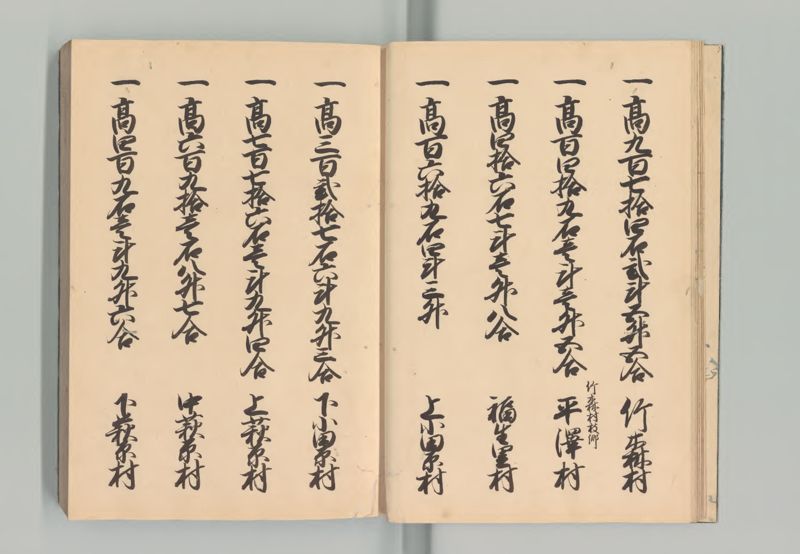 一高九百七拾四石弐斗五升五合 竹森村
竹森村枝郷
一高百四拾九石壱斗壱升五合 平澤村
一高四拾六石七斗壱升八合 福生里村
一高百六拾九石四斗三升 上小田原村
一高三百弐拾七石六斗九升三合 下小田原村
一高七百七拾六石壱斗九升四合 上萩原村
一高六百九拾壱石八升七合 中萩原村
一高四百九石壱斗九升六合 下萩原村